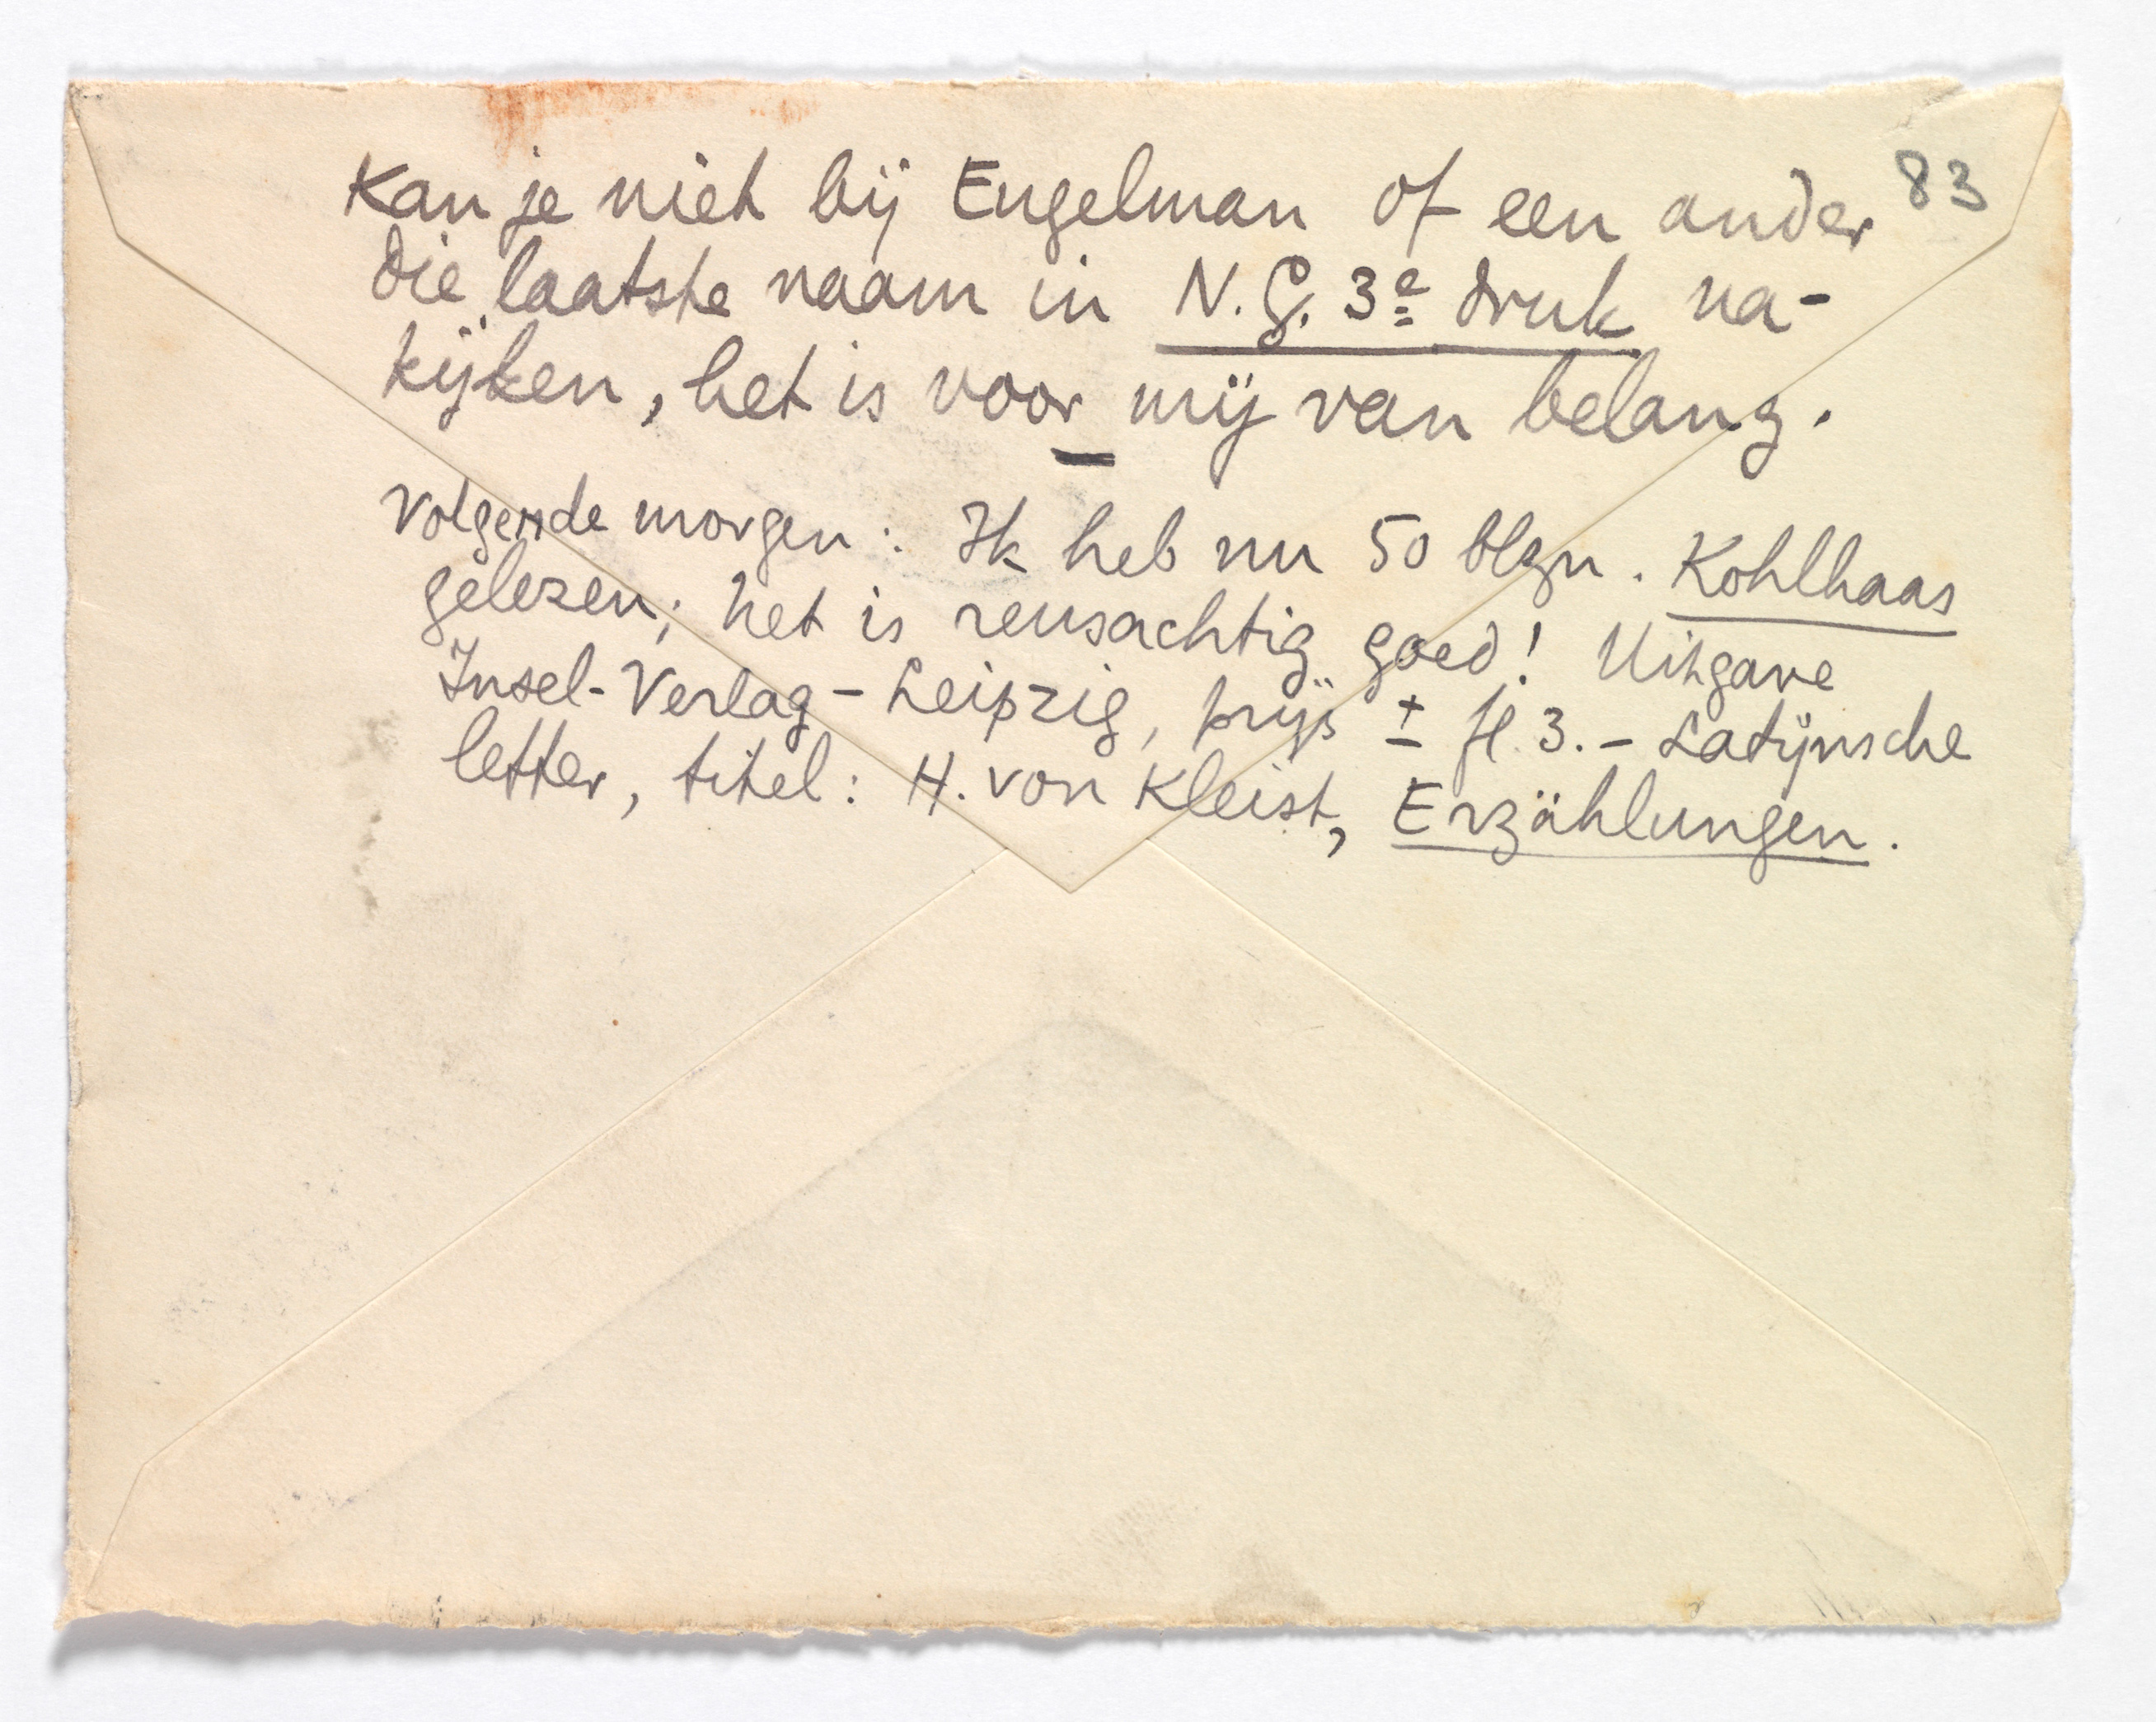 83
Kan je niet bij Engelman of een ander
die laatste naam in N.G. 3e druk na-
kijken, het is voor mij van belang.
Volgende morgen: Ik heb nu 50 blzn. Kohlhaas
gelezen; het is reusachtig goed! Uitgave
Insel-Verlag - Leipzig, prijs ± fl. 3.- Latijnsche
letter, titel: H. von Kleist, Erzählungen.